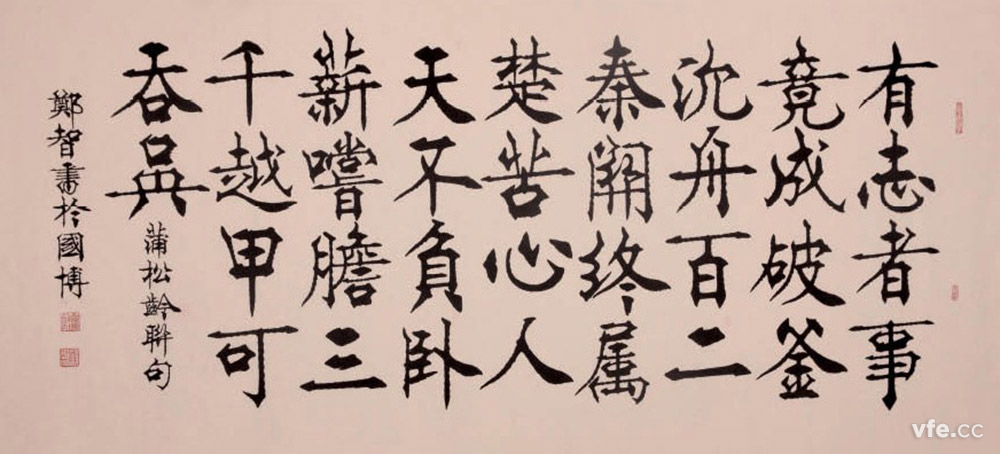 有志者事
竟成破釜
沈舟百二
秦關終属
楚苦心人
天不負卧
薪嚐膽三
千越甲可
吞吳
蒲松齡聯句
鄭智書於國博
vfe.cc